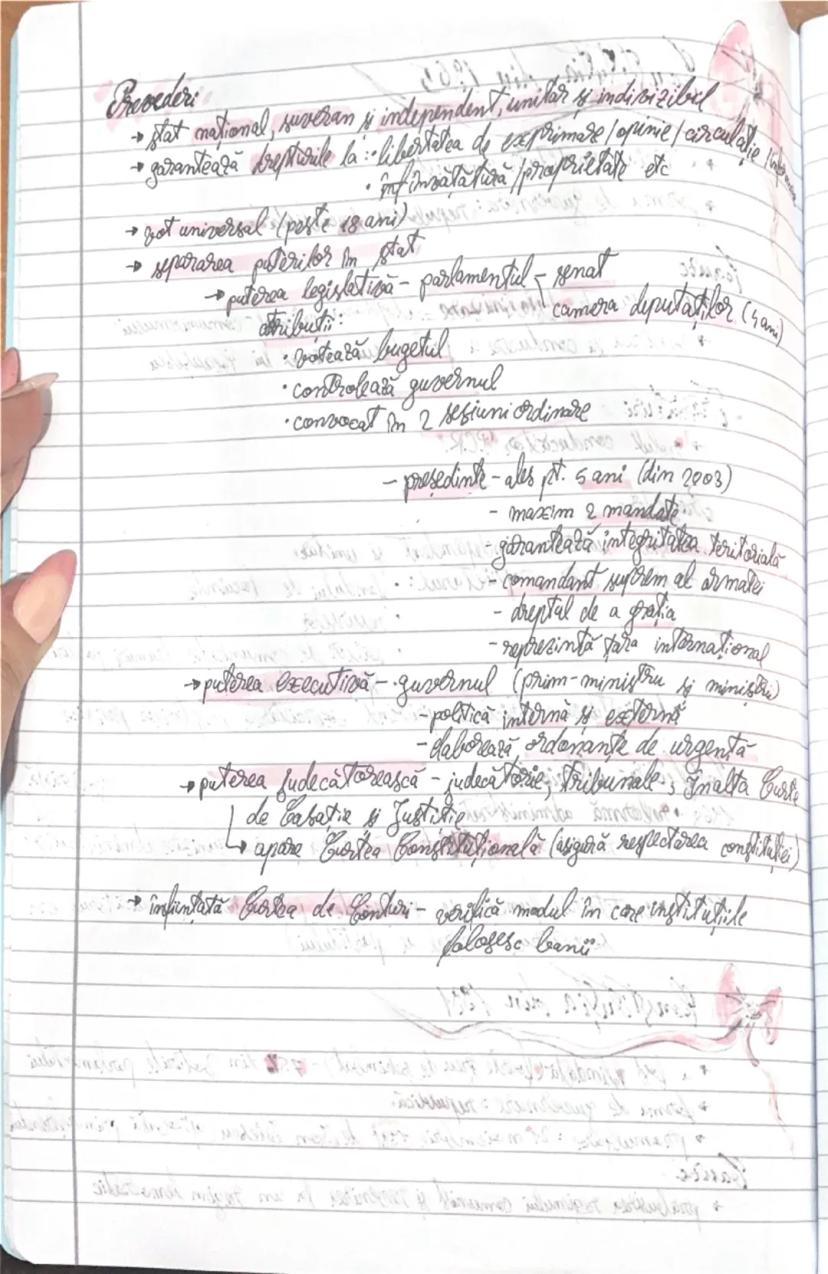 Prevederi
→ stat național, suveran și independent, unitar și indivizibil
→ garantează drepturile la: · libertatea de exprimare/opinie/circulație/
· înfințătură/proprietate etc
→ vot universal (peste 18 ani)
→ separarea puterilor în stat
→ puterea legislativă - parlamentul - senat
camera deputaților (4 ani)
atribuții:
· votează bugetul
· controlează guvernul
· convocat în 2 sesiuni ordinare
- președinte - ales pt. 5 ani (din 2003)
- maxim 2 mandate
- garantează integritatea teritorială
- comandant suprem al armatei
- dreptul de a grația
- reprezintă țara internațional
→ puterea executivă - · guvernul (prim-ministru și miniștri)
- politică internă și externă
- elaborează ordonanțe de urgență
→ puterea judecătorească - judecătorie, tribunale, Înalta Curte
de Casație și Justiție
↳ apare Curtea Constituțională (asigură respectarea constituției)
→ înființată Curtea de Conturi - verifică modul în care instituțiile
folosesc banii